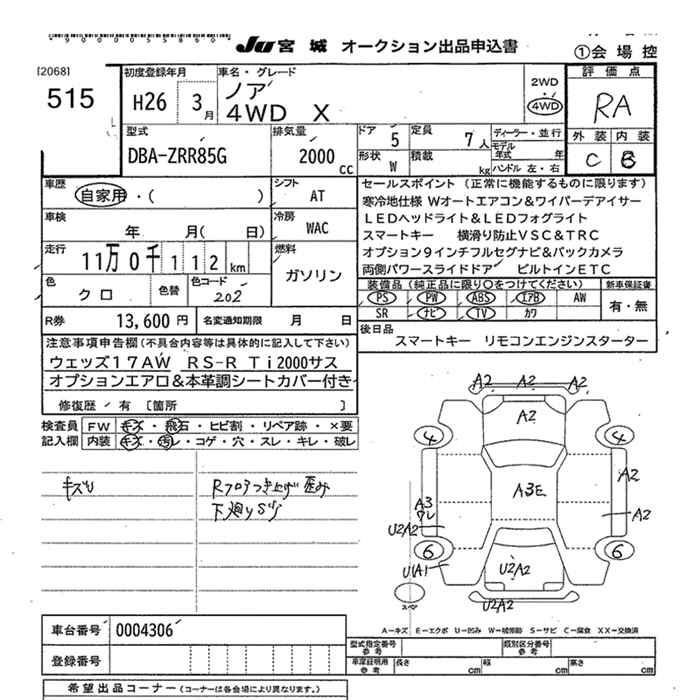 JU 宮城 オークション出品申込書
①会場控
[2068]
515
初度登録年月
H26 3月
車名・グレード
ノア
4WD X
2WD
・
4WD
評価点
RA
外装 内装
C B
型式
DBA-ZRR85G
排気量
2000 cc
ドア 5
定員 7人
形状 W
積載 kg
ディーラー・並行
モデル年式 年
ハンドル 左・右
車歴
自家用・( )
シフト
AT
車検
年 月( 日)
冷房
WAC
走行
11万0千112km
燃料
ガソリン
色
クロ
色替
色コード
202
R券 13,600円
名変通知期限 月 日
セールスポイント (正常に機能するものに限ります)
寒冷地仕様 Wオートエアコン&ワイパーデアイサー
LEDヘッドライト&LEDフォグライト
スマートキー 横滑り防止VSC&TRC
オプション9インチフルセグナビ&バックカメラ
両側パワースライドドア ビルトインETC
装備品 (純正品に限り○をつけてください)
新車保証書
PS PW ABS エアB AW
SR ナビ TV カワ
有・無
後日品
スマートキー リモコンエンジンスターター
注意事項申告欄 (不具合内容等は具体的に記入して下さい)
ウェッズ17AW RS-R Ti2000サス
オプションエアロ&本革調シートカバー付き
修復歴/有 [箇所 ]
検査員記入欄
FW キズ・飛石・ヒビ割・リペア跡・×要
内装 キズ・汚レ・コゲ・穴・スレ・キレ・破レ
Rフロアつき上げ 歪み
A2 A2 A2
A2
4 4
A3E
A2
A3
A2
U2A2
6 6
U1A1
U2A2
スペア
U2A2
A−キズ E−エクボ U−凹み W−補修跡 S−サビ C−腐食 XX−交換済
車台番号 0004306
登録番号
型式指定番号 参考
類別区分番号 参考
車庫証明用 参考
長さ cm
幅 cm
高さ cm
希望出品コーナー (コーナーは各会場により異なります。)